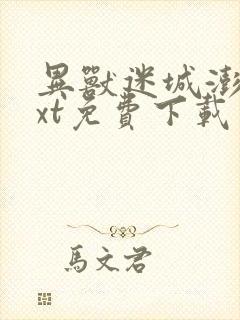 異獸迷城澎
xt免費下載
馬文君